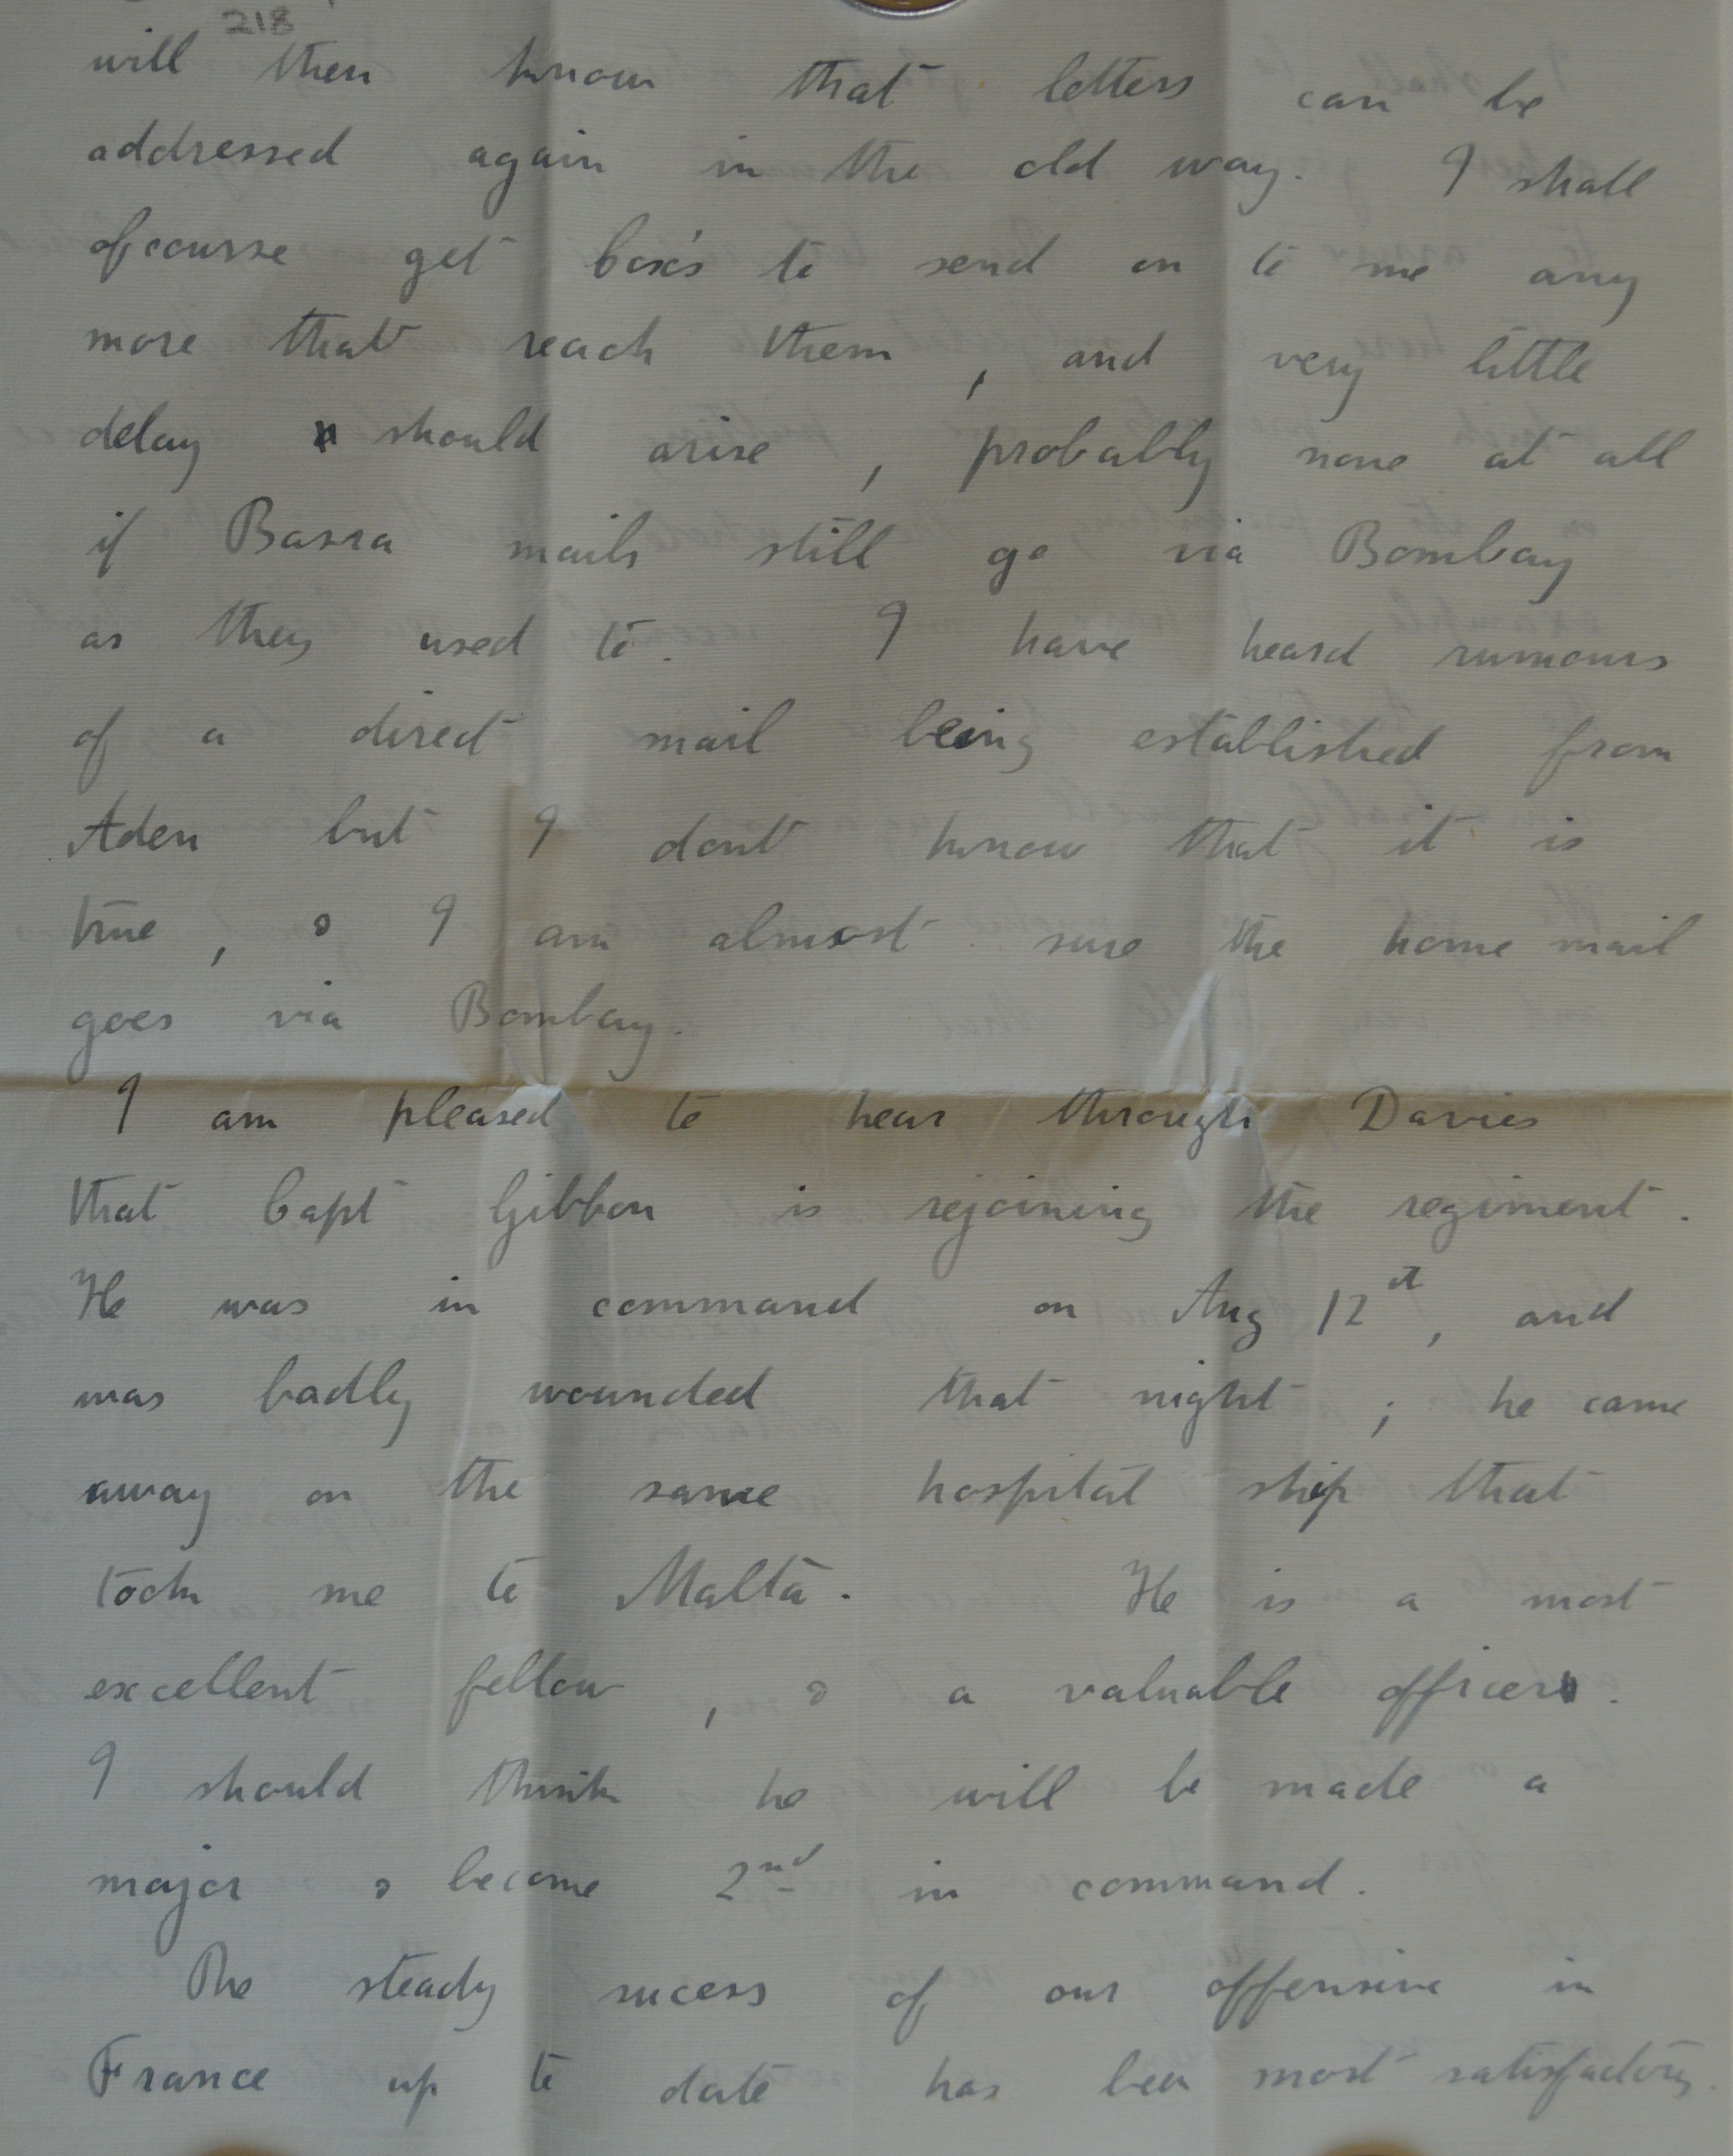 218
will then know that letters can be
addressed again in the old way. I shall
ofcourse get Cox's to send on to me any
more that reach them, and very little
delay should arise, probably none at all
if Basra mails still go via Bombay
as they used to. I have heard rumours
of a direct mail being established from
Aden but I dont know that it is
true, & I am almost sure the home mail
goes via Bombay.
I am pleased to hear through Davies
that Capt Gibbon is rejoining the regiment.
He was in command on Aug 12st, and
was badly wounded that night; he came
away on the same hospital ship that
took me to Malta. He is a most
excellent fellow, & a valuable officer.
I should think he will be made a
major & become 2nd in command.
The steady sucess of our offensive in
France up to date has been most satisfactory.